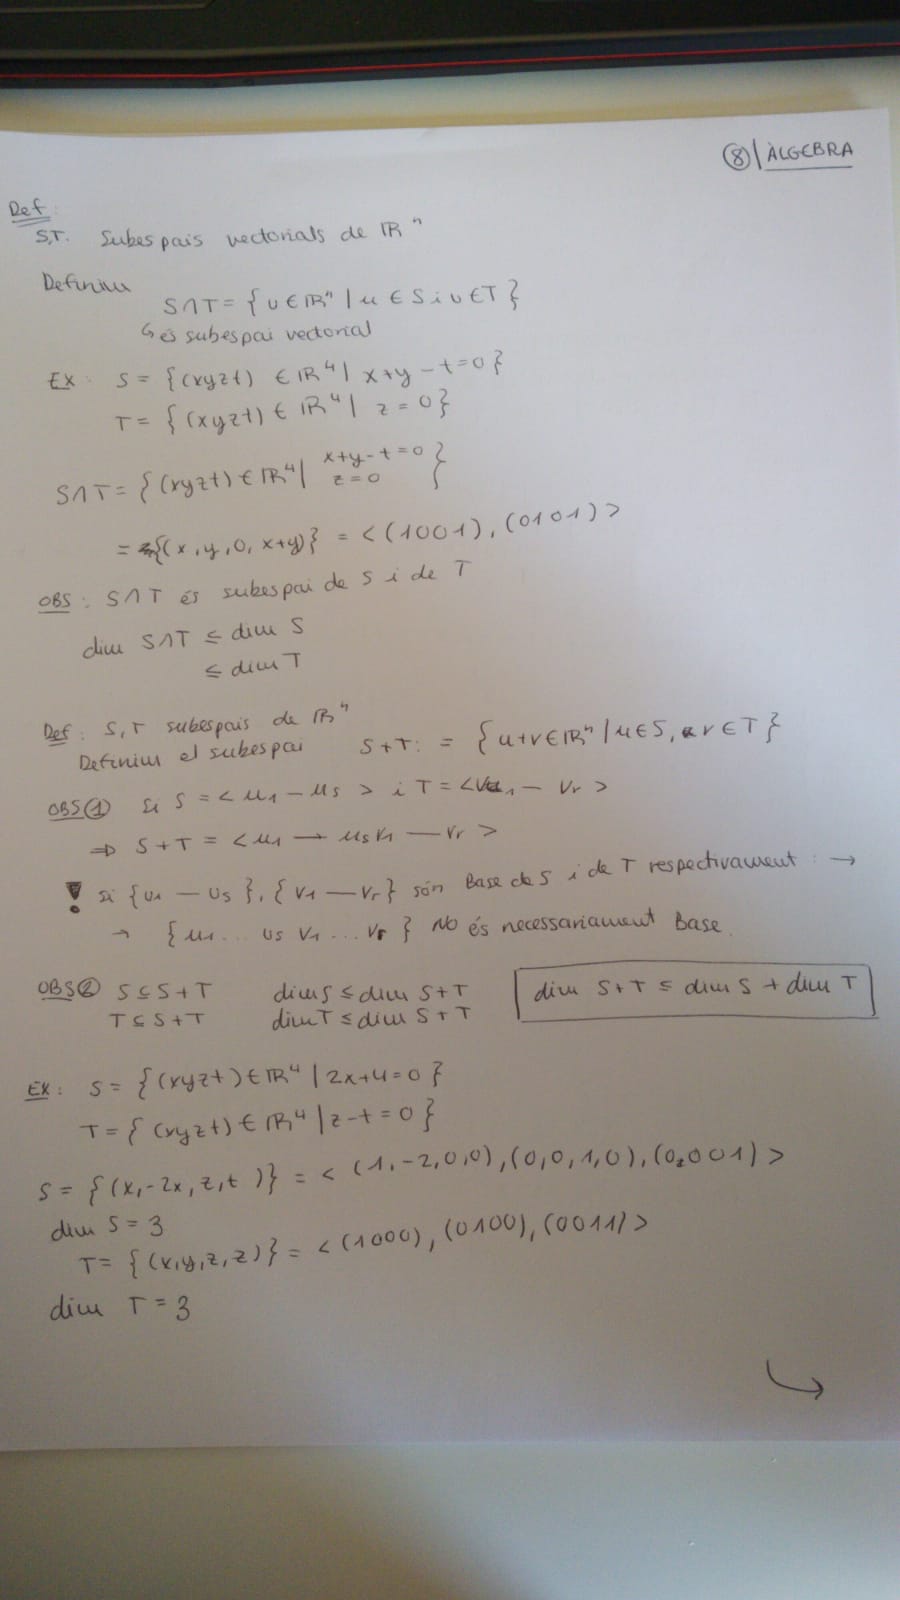 ⑧| ÀLGEBRA
Def:
S,T. Subespais vectorials de ℝⁿ
Definim
S∩T = { u ∈ ℝⁿ | u ∈ S i u ∈ T }
↳ és subespai vectorial
EX: S = { (xyzt) ∈ ℝ⁴ | x+y-t=0 }
T = { (xyzt) ∈ ℝ⁴ | z = 0 }
S∩T = { (xyzt) ∈ ℝ⁴ | x+y-t=0 z=0 }
= {(x,y,0,x+y)} = <(1001), (0101)>
OBS: S∩T és subespai de S i de T
dim S∩T ≤ dim S
≤ dim T
Def: S,T subespais de ℝⁿ
Definim el subespai S+T: = { u+v ∈ ℝⁿ | u ∈ S, v ∈ T }
OBS① Si S = < u₁ — us > i T = < v₁ — vr >
⇒ S+T = < u₁ — us v₁ — vr >
! si {u₁ — us}, {v₁ — vr} són Base de S i de T respectivament: →
→ { u₁... us v₁... vr } No és necessariament Base.
OBS② S ⊆ S+T dim S ≤ dim S+T dim S+T ≤ dim S + dim T
T ⊆ S+T dim T ≤ dim S+T
EX: S = { (xyzt) ∈ ℝ⁴ | 2x+y=0 }
T = { (xyzt) ∈ ℝ⁴ | z-t=0 }
S = { (x,-2x,z,t) } = < (1,-2,0,0), (0,0,1,0), (0,001) >
dim S = 3
T = { (x,y,z,z) } = < (1000), (0100), (0011) >
dim T = 3